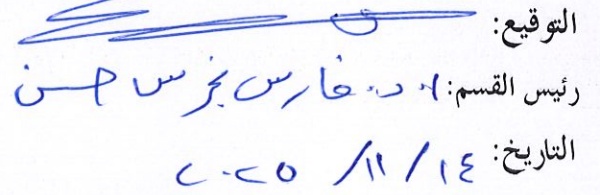 التوقيع:
رئيس القسم: أ. د. فارس نجرس حسن
التاريخ: ١٤ / ١١ / ٢٠٢٥